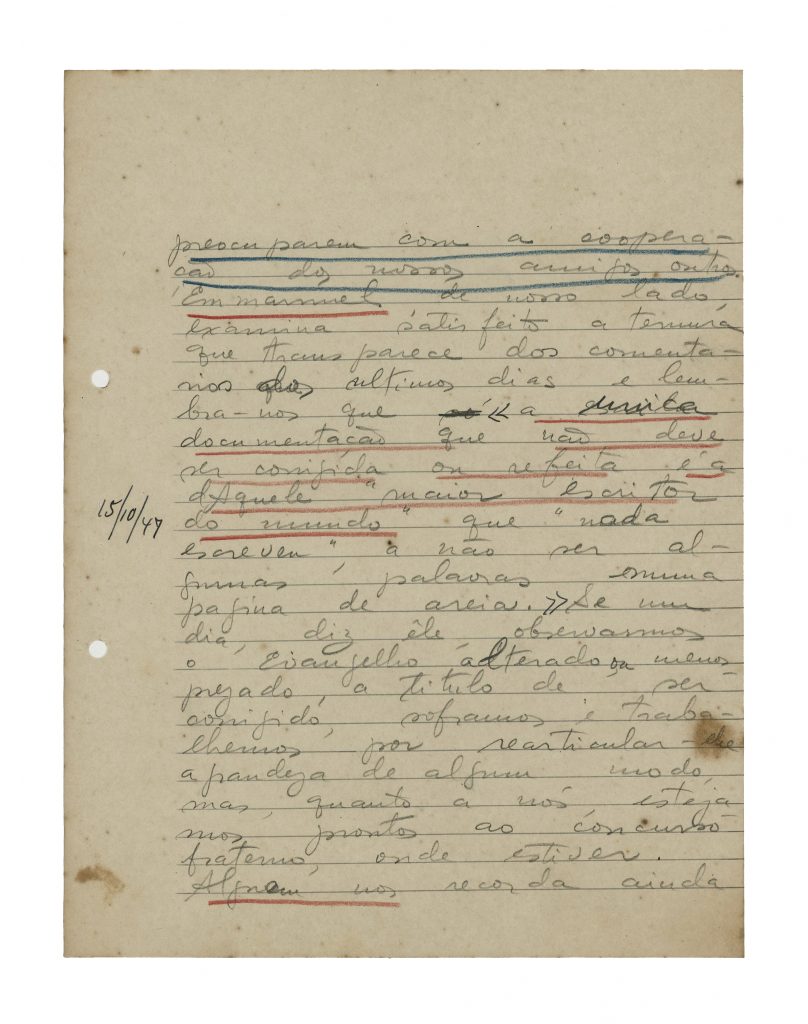 preocuparem com a coopera-
ção dos nossos amigos outros.
Emmanuel de nosso lado,
examina satisfeito a ternura
que transparece dos comenta-
rios dos ultimos dias e lem-
bra-nos que « a unica
documentação que não deve
ser corrigida ou refeita é a
dAquele "maior escritor
15/10/47
do mundo" que "nada
escreveu", a não ser al-
gumas palavras numa
pagina de areia. » Se um
dia, diz êle, observarmos
o Evangelho adterado ou menos
prezado, a titulo de ser
corrigido, soframos e traba-
lhemos por rearticular-lhe
a grandeza de algum modo,
mas, quanto a nós, esteja
mos prontos ao concurso
fraterno, onde estiver.
Alguem nos recorda ainda